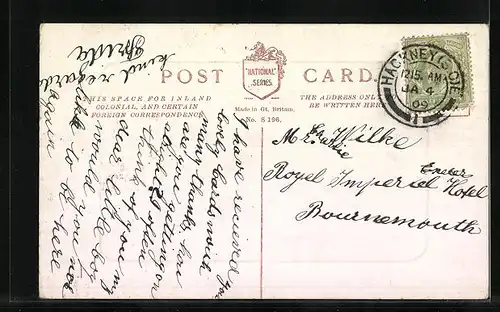 POST CARD.
"NATIONAL"
SERIES
THIS SPACE FOR INLAND
COLONIAL, AND CERTAIN
FOREIGN CORRESPONDENCE
Made in Gt. Britain.
No. S 196.
THE ADDRESS ONLY
BE WRITTEN HERE
HACKNEY
12.15 AM
JA 4
09
I have received your
lovely cards
many thanks how
are you getting on
I often
think of you my
dear little boy
would you not
like to be here
again
kind regards
Frida
Mr Wilke
Royal Imperial Exeter Hotel
Bournemouth